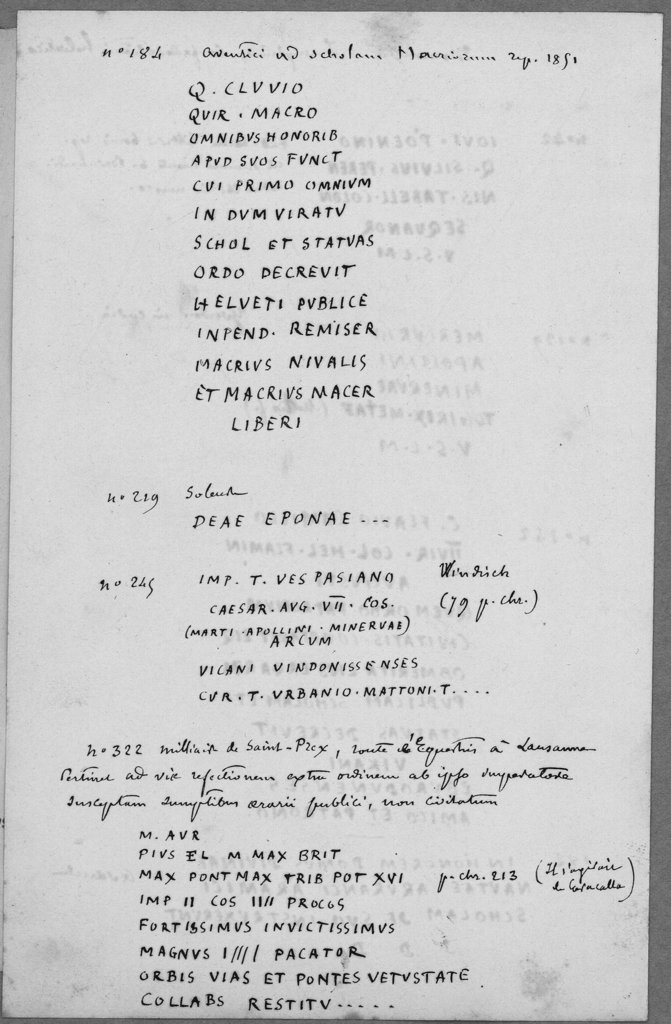 nº 184 Aventici ad scholam Macriorum rep. 1851
Q. CLVVIO
QUIR. MACRO
OMNIBVS HONORIB
APVD SUOS FUNCT
CVI PRIMO OMNIVM
IN DVMVIRATV
SCHOL ET STATVAS
ORDO DECREVIT
HELVETI PVBLICE
INPEND. REMISER
MACRIVS NIVALIS
ET MACRIVS MACER
LIBERI
nº 219 Soleure
DEAE EPONAE ---
nº 245 IMP. T. VESPASIANO Windisch
CAESAR. AVG. VII. COS. (79 p. chr.)
(MARTI. APOLLINI. MINERVAE)
ARCVM
VICANI VINDONISSENSES
CVR. T. VRBANIO. MATTONI. T. ....
nº 322 milliaire de Saint-Prex, route d'Equestris à Lausanne
Pertinet ad viæ refectionem extra ordinem ab ipso imperatore
susceptam sumptibus ærarii publici, non civitatum
M. AVR
PIVS EL M MAX BRIT
MAX PONT MAX TRIB POT XVI p. chr. 213 (Il s'agirait
de Caracalla)
IMP II COS IIII PROCOS
FORTISSIMUS INVICTISSIMUS
MAGNVS I//// PACATOR
ORBIS VIAS ET PONTES VETVSTATE
COLLABS RESTITV.....